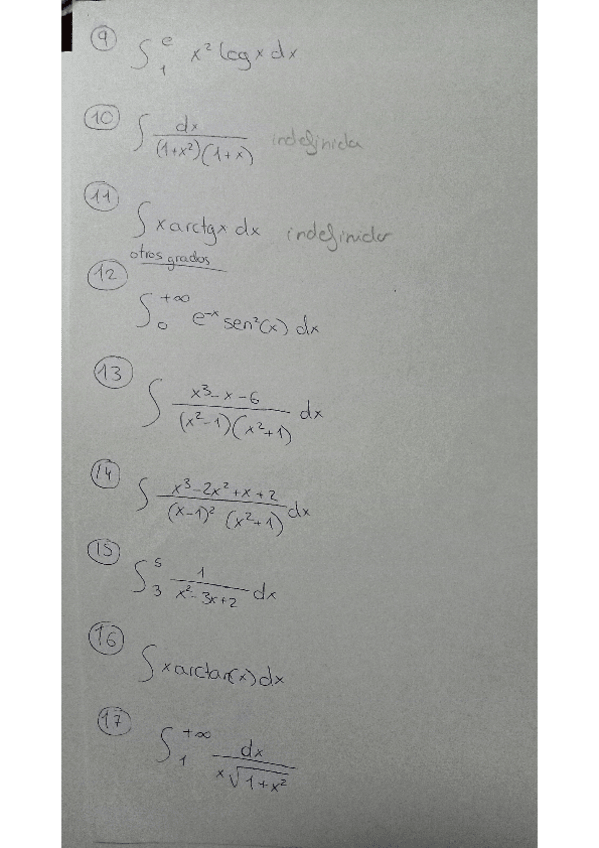 9 ∫₁^e x² log x dx
10 ∫ dx / (1+x²)(1+x) indefinida
11 ∫ x arctg x dx indefinida
otros grados
12 ∫₀^+∞ e^-x sen²(x) dx
13 ∫ x³-x-6 / (x²-1)(x²+1) dx
14 ∫ x³-2x²+x+2 / (x-1)² (x²+1) dx
15 ∫₃^5 1 / x²-3x+2 dx
16 ∫ x arctan(x) dx
17 ∫₁^+∞ dx / x√1+x²